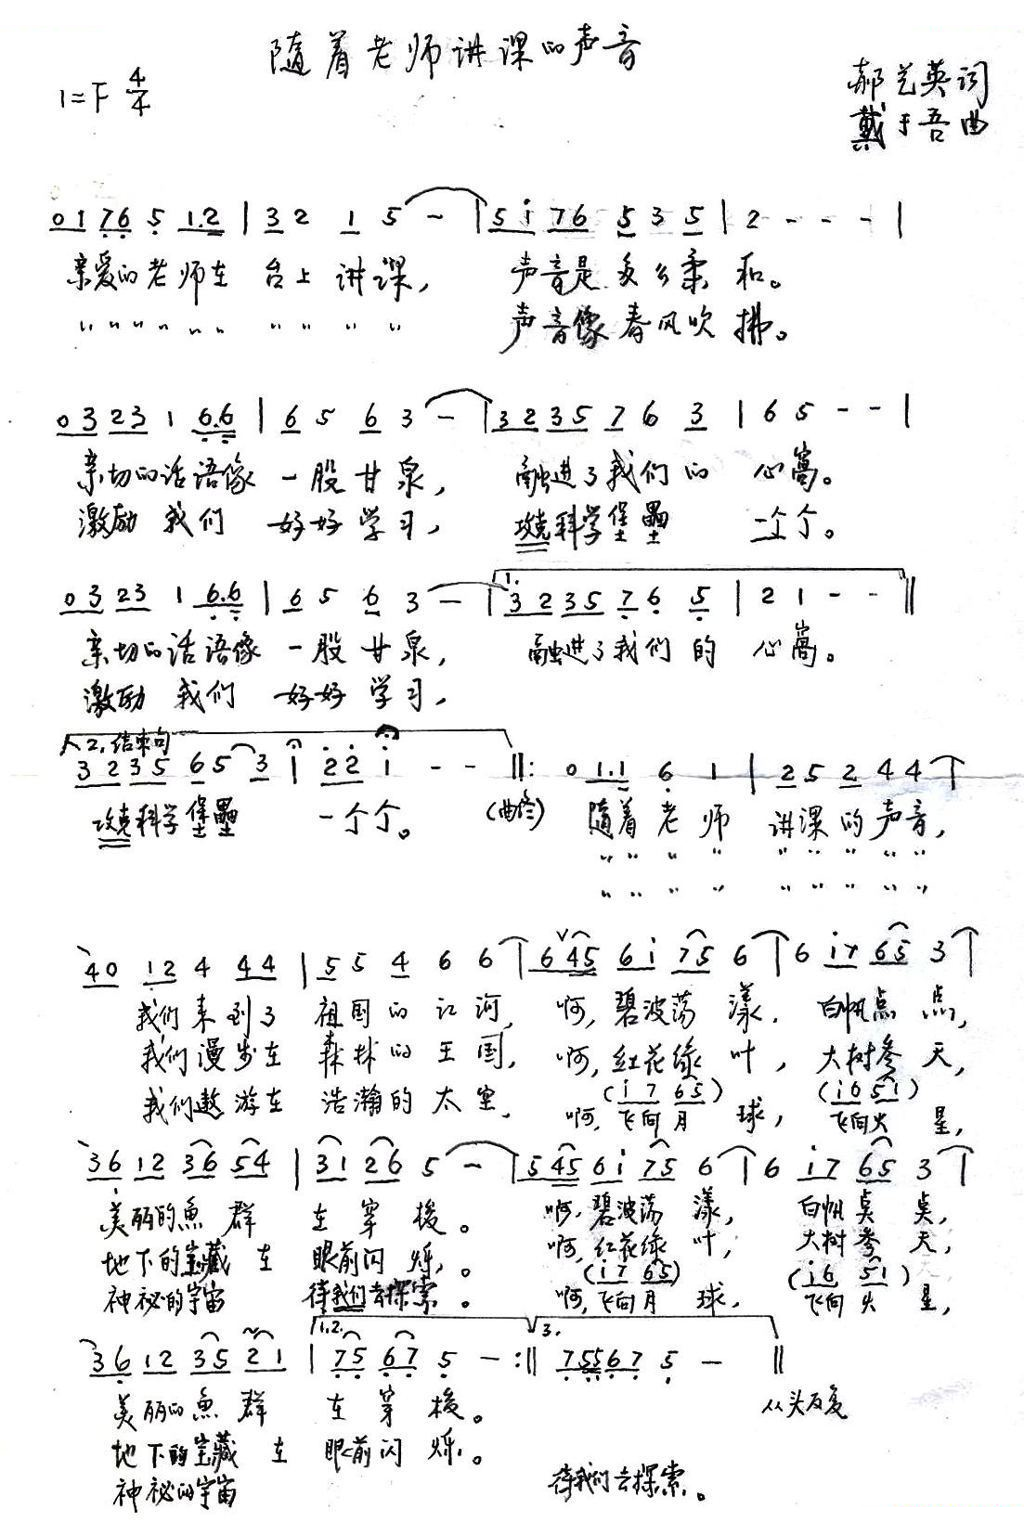 随着老师讲课的声音
1=F 4/4
郝艺英词
戴于吾曲
0 1 7 6 5 1.2 | 3 2 1 5 - | 5 i 7 6 5 3 5 | 2 - - - |
亲爱的老师在 台上讲课, 声音是多么柔和。
" " " " " " " " " " 声音像春风吹拂。
0 3 2 3 1 6.6 | 6 5 6 3 - | 3 2 3 5 7 6 3 | 6 5 - - |
亲切的话语像 一股甘泉, 融进了我们的 心窝。
激励我们 好好学习, 攻克科学堡垒 一个个。
0 3 2 3 1 6.6 | 6 5 6 3 - | 1. 3 2 3 5 7 6 5 | 2 1 - - ||
亲切的话语像 一股甘泉, 融进了我们的 心窝。
激励 我们 好好学习,
2. 结束句
3 2 3 5 6 5 3 i 2 2 i - - ||: 0 1.1 6 1 | 2 5 2 4 4 |
攻克科学堡垒 一个个。 随着老师 讲课的声音,
" " " " " " " " "
" " " " " " " " "
4 0 1 2 4 4 4 | 5 5 4 6 6 | 6 4 5 6 i 7 5 6 | 6 i 7 6 5 3 |
我们来到了 祖国的江河, 啊, 碧波荡漾, 白帆点点,
我们漫步在 森林的王国, 啊, 红花绿叶, 大树参天,
(i 7 6 5) (i 6 5 i)
我们遨游在 浩瀚的太空, 啊, 飞向月球, 飞向火星,
3 6 1 2 3 6 5 4 | 3 1 2 6 5 - | 5 4 5 6 i 7 5 6 | 6 i 7 6 5 3 |
美丽的鱼群 在穿梭。 啊, 碧波荡漾, 白帆点点,
地下的宝藏在 眼前闪烁。 啊, 红花绿叶, 大树参天,
(i 7 6 5) (i 6 5 i)
神秘的宇宙 待我们去探索。 啊, 飞向月球, 飞向火星,
3 6 1 2 3 5 2 1 | 1.2. 7 5 6 7 5 - :|| 3. 7 5 5 6 7 5 - ||
美丽的鱼群 在穿梭。 从头反复
地下的宝藏在 眼前闪烁。
神秘的宇宙 待我们去探索。